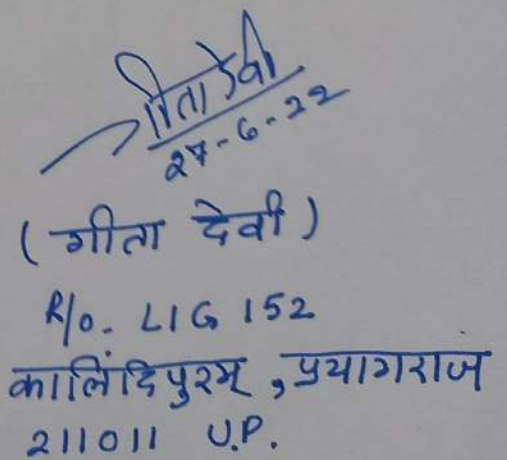 गीता देवी
27-6-22
(गीता देवी)
R/o. LIG 152
कालिंदिपुरम्, प्रयागराज
211011 U.P.